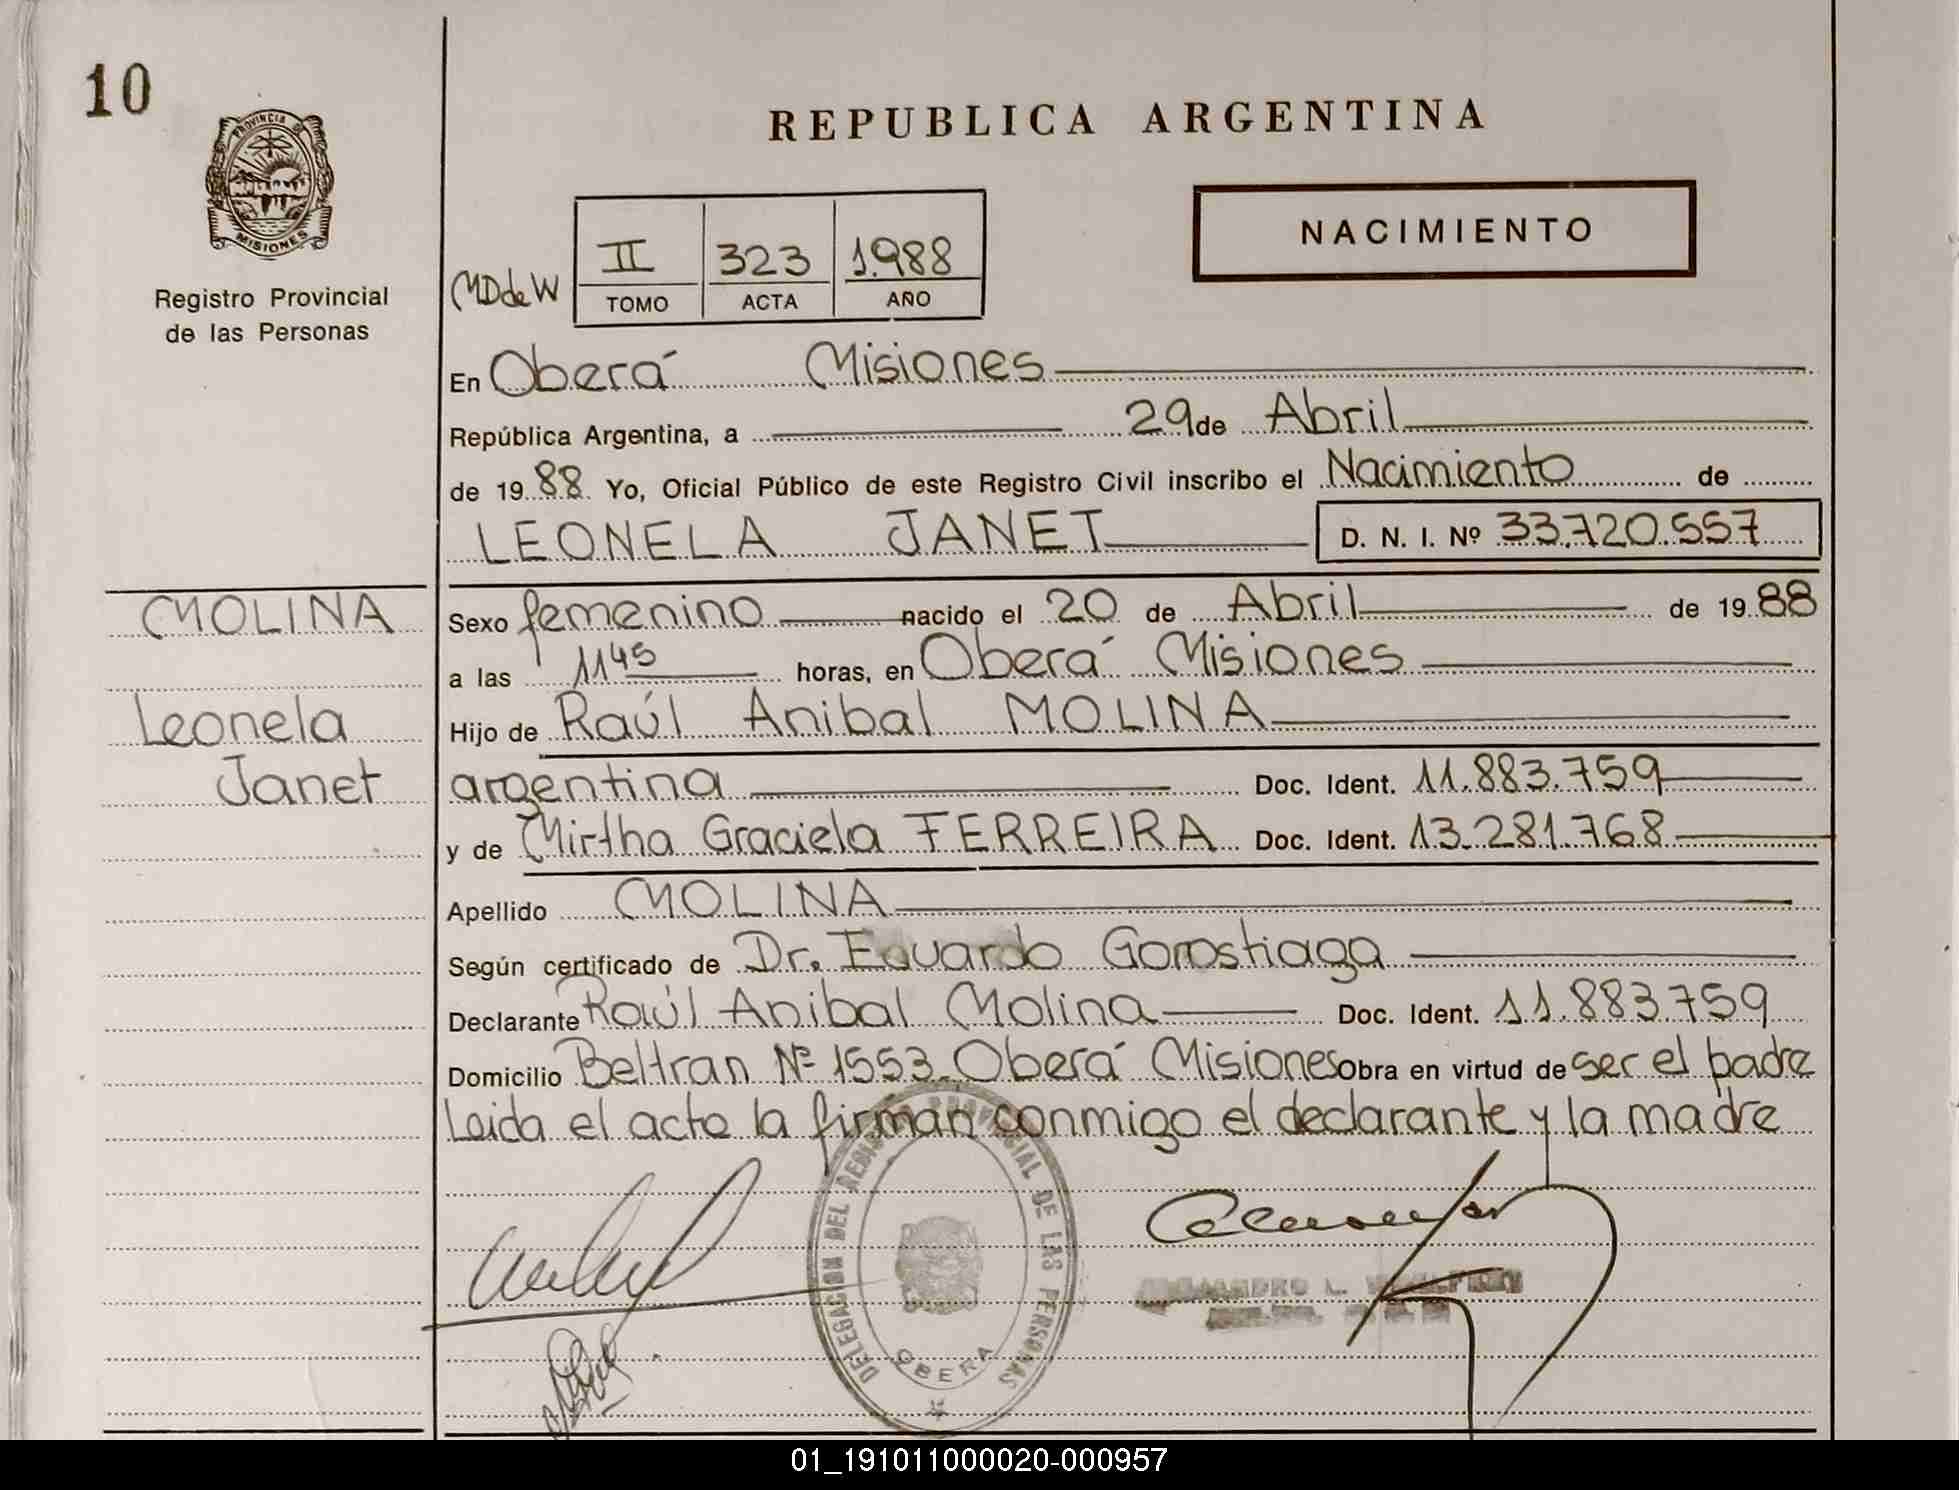 10
PROVINCIA DE
MISIONES
Registro Provincial
de las Personas
REPUBLICA ARGENTINA
NACIMIENTO
MD de W
II 323 1.988
TOMO ACTA AÑO
En Oberá Misiones
República Argentina, a 29 de Abril
de 19 88 Yo, Oficial Público de este Registro Civil inscribo el Nacimiento de
LEONELA JANET D. N. I. Nº 33.720.557
MOLINA
Leonela
Janet
Sexo femenino nacido el 20 de Abril de 19 88
a las 11 45 horas, en Oberá Misiones
Hijo de Raúl Anibal MOLINA
argentina Doc. Ident. 11.883.759
y de Mirtha Graciela FERREIRA Doc. Ident. 13.281.768
Apellido MOLINA
Según certificado de Dr. Eduardo Gorostiaga
Declarante Raúl Anibal Molina Doc. Ident. 11.883.759
Domicilio Beltran Nº 1553 Oberá Misiones Obra en virtud de ser el padre
Leida el acta la firman conmigo el declarante y la madre
DELEGACION DEL REGISTRO PROVINCIAL DE LAS PERSONAS
OBERA
01_191011000020-000957